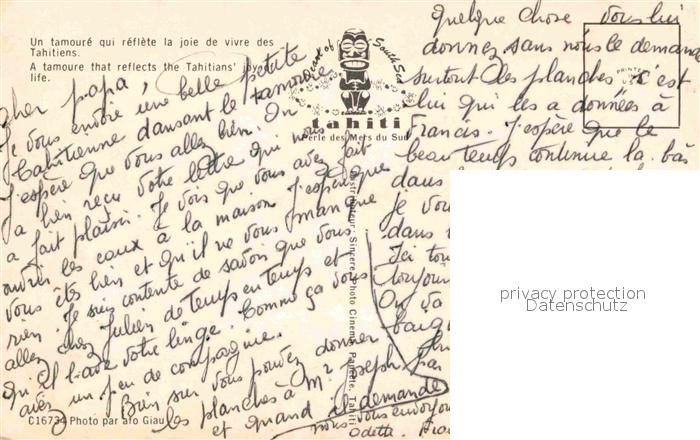 Un tamouré qui réflète la joie de vivre des
Tahitiens.
A tamoure that reflects the Tahitians' joy of
life.
Pearl of the South Sea
tahiti
Perle des Mers du Sud
Cher papa,
Je vous envoie une belle petite
Tahitienne dansant le tamouré
J'espère que vous allez bien. On
a bien reçu votre lettre qui nous
a fait plaisir. Je vois que vous avez fait
ouvrir les eaux à la maison. J'espère que
vous êtes bien et qu'il ne vous manque
rien. Je suis contente de savoir que vous
allez chez Julien de temps en temps et
qu'il lave votre linge. Comme ça vous
avez un peu de compagnie.
Bien sur vous pouvez donner
les planches à Mr Joseph
et quand il demande
quelque chose vous lui
donnez sans nous le demander
surtout des planches c'est
lui qui les a données à
Francis. J'espère que le
beau temps continue là-bas
dans
je vou
dans
Ici tou
toujour
On va
nous envoyon
Odette.
Distributeur: Sincere Photo Cinema, Papeete, Tahiti
C16734 Photo par afo Giau
PRINTED
privacy protection
Datenschutz